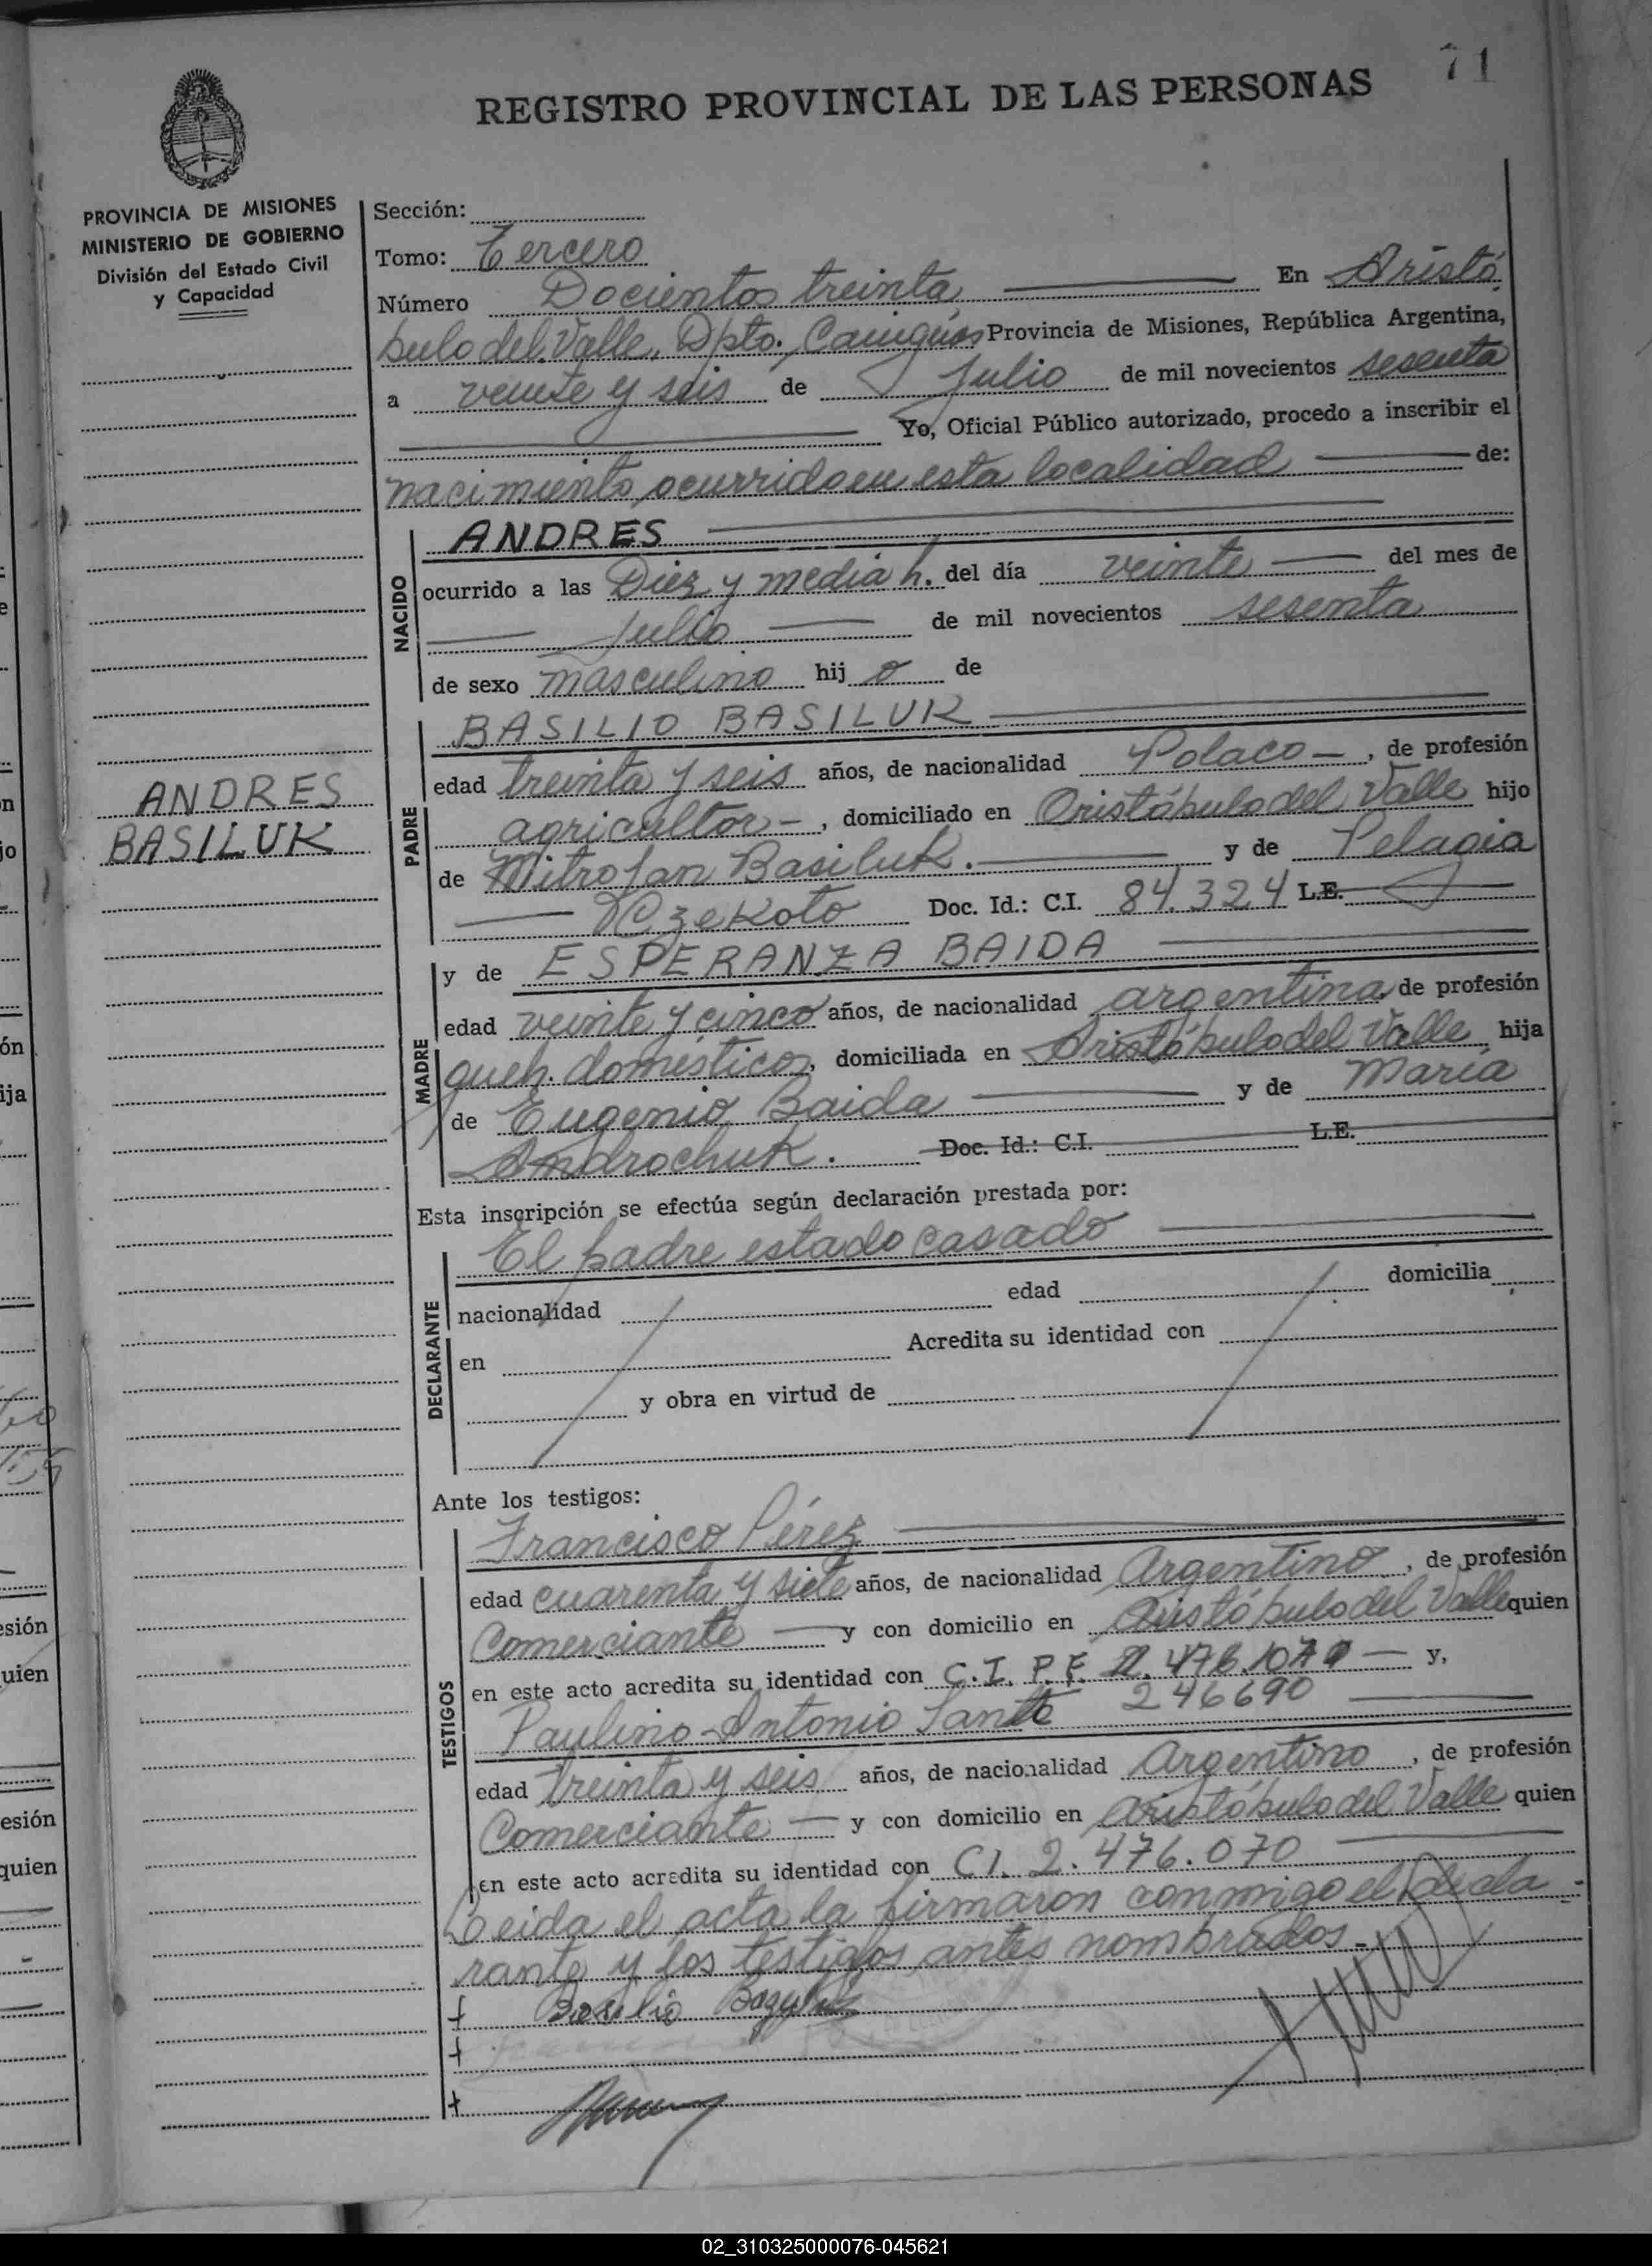 71
REGISTRO PROVINCIAL DE LAS PERSONAS
PROVINCIA DE MISIONES
MINISTERIO DE GOBIERNO
División del Estado Civil
y Capacidad
Sección:
Tomo: Tercero
Número Docientos treinta En Aristó
bulo del Valle, Dpto. Cainguás Provincia de Misiones, República Argentina,
a veinte y seis de Julio de mil novecientos sesenta
Yo, Oficial Público autorizado, procedo a inscribir el
nacimiento ocurrido en esta localidad de:
NACIDO
ANDRES
ocurrido a las Diez y media h. del día veinte del mes de
Julio de mil novecientos sesenta
de sexo masculino hij o de
ANDRES
BASILUK
PADRE
BASILIO BASILUK
edad treinta y seis años, de nacionalidad Polaco, de profesión
agricultor, domiciliado en Aristóbulo del Valle hijo
de Mitrofan Basiluk. y de Pelagia
Kzekoto Doc. Id.: C.I. 84.324 L.E.
MADRE
y de ESPERANZA BAIDA
edad veinte y cinco años, de nacionalidad argentina, de profesión
queh. domésticos, domiciliada en Aristóbulo del Valle hija
de Eugenio Baida y de María
Androchuk. Doc. Id.: C.I. L.E.
Esta inscripción se efectúa según declaración prestada por:
DECLARANTE
El padre estado casado
nacionalidad edad domicilia
en Acredita su identidad con
y obra en virtud de
Ante los testigos:
TESTIGOS
Francisco Pérez
edad cuarenta y siete años, de nacionalidad Argentino, de profesión
Comerciante y con domicilio en Aristóbulo del Valle quien
en este acto acredita su identidad con C.I. P.F. y,
246690
Paulino Antonio Santo
edad treinta y seis años, de nacionalidad Argentino, de profesión
Comerciante y con domicilio en Aristóbulo del Valle quien
en este acto acredita su identidad con C.I. 2.476.070
Leida el acta la firmaron conmigo el decla
rante y los testigos antes nombrados.
Basilio
02_310325000076-045621